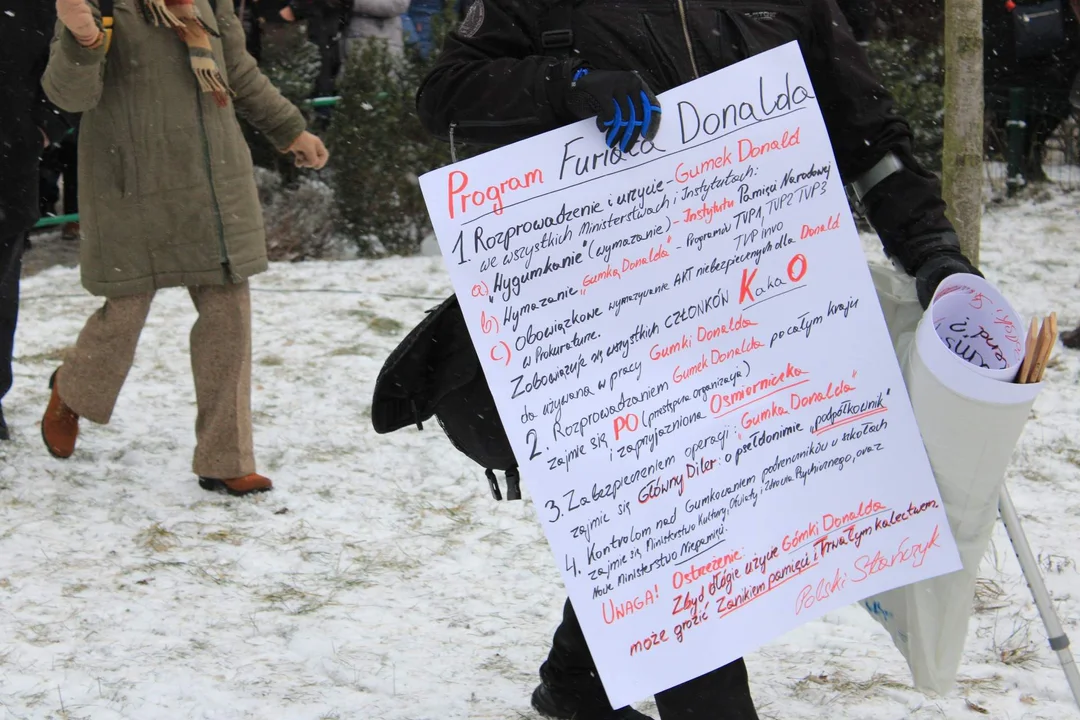 Program Furiata Donalda
1. Rozprowadzenie i użycie - Gumek Donald
we wszystkich Ministerstwach i Instytutach:
a) „Wygumkanie" (wymazanie) - Instytutu Pamięci Narodowej
b) Wymazanie „Gumką Donalda" - Programów TVP1, TVP2 TVP3
TVP info
c) Obowiązkowe wymazywanie AKT niebezpiecznych dla Donald
w Prokuraturze.
Zobowiązuje się wszystkich CZŁONKÓW KakaO
do używania w pracy Gumki Donalda
2. Rozprowadzeniem Gumek Donalda po całym kraju
zajmie się PO (przestępcza organizacja)
i zaprzyjaźniona Ośmiorniczka
3. Zabezpieczeniem operacji: „Gumka Donalda"
zajmie się Główny Diler: o psełdonimie „podpółkownik"
4. Kontrolom nad Gumkowaniem podrenczników w szkołach
zajmie się Ministerstwo Kultury, Oświaty i Zdrowia Psychicznego, oraz
Nowe Ministerstwo Niepamięci.
UWAGA! Ostrzeżenie:
Zbyd dłógie użycie Gómki Donalda
może grozić Zanikiem pamięci i trwałym kalectwem.
Polski Stańczyk